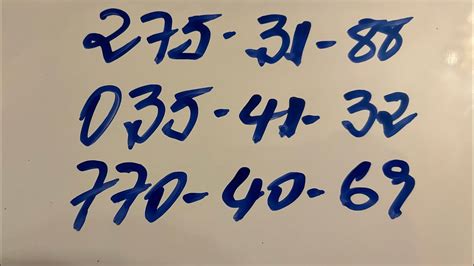 275-31-88
035-41-32
770-40-69